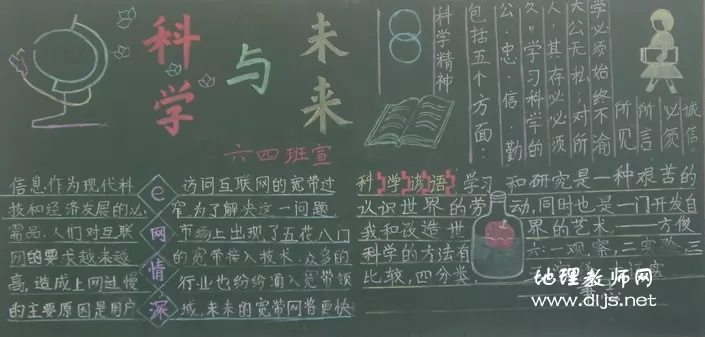 科学
与
未来
六四班宣
信息,作为现代科
技和经济发展的必
需品,人们对互联
网的要求越来越
高,造成上网过慢
的主要原因是用户
e网情深
访问互联网的宽带过
窄,为了解决这一问题,
市场上出现了五花八门
的宽带接入技术,众多的
行业也纷纷涌入宽带领
域,未来的宽带网将更快
科学精神
包括五个方面:
公·忠·信·勤·
久。学习科学的
人,其存必必须
大公无私;对所
学必须始终不渝
所见
所言
必须
诚信
科学谚语
学习和研究是一种艰苦的
认识世界的劳动,同时也是一门开发自
我和改造世界的艺术.——方俊
科学的方法有六:一观察,二实验,三
比较,四分类,
地理教师网
www.dljs.net